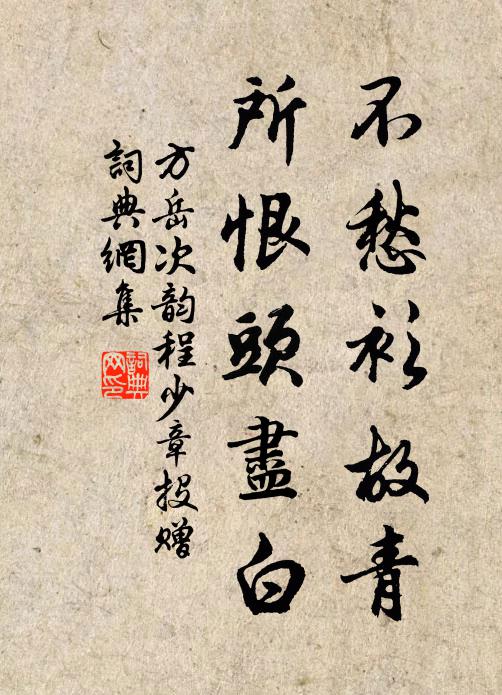 不愁衫故青
所恨頭盡白
方岳次韵程少章投赠
詞典網集
詞典網印